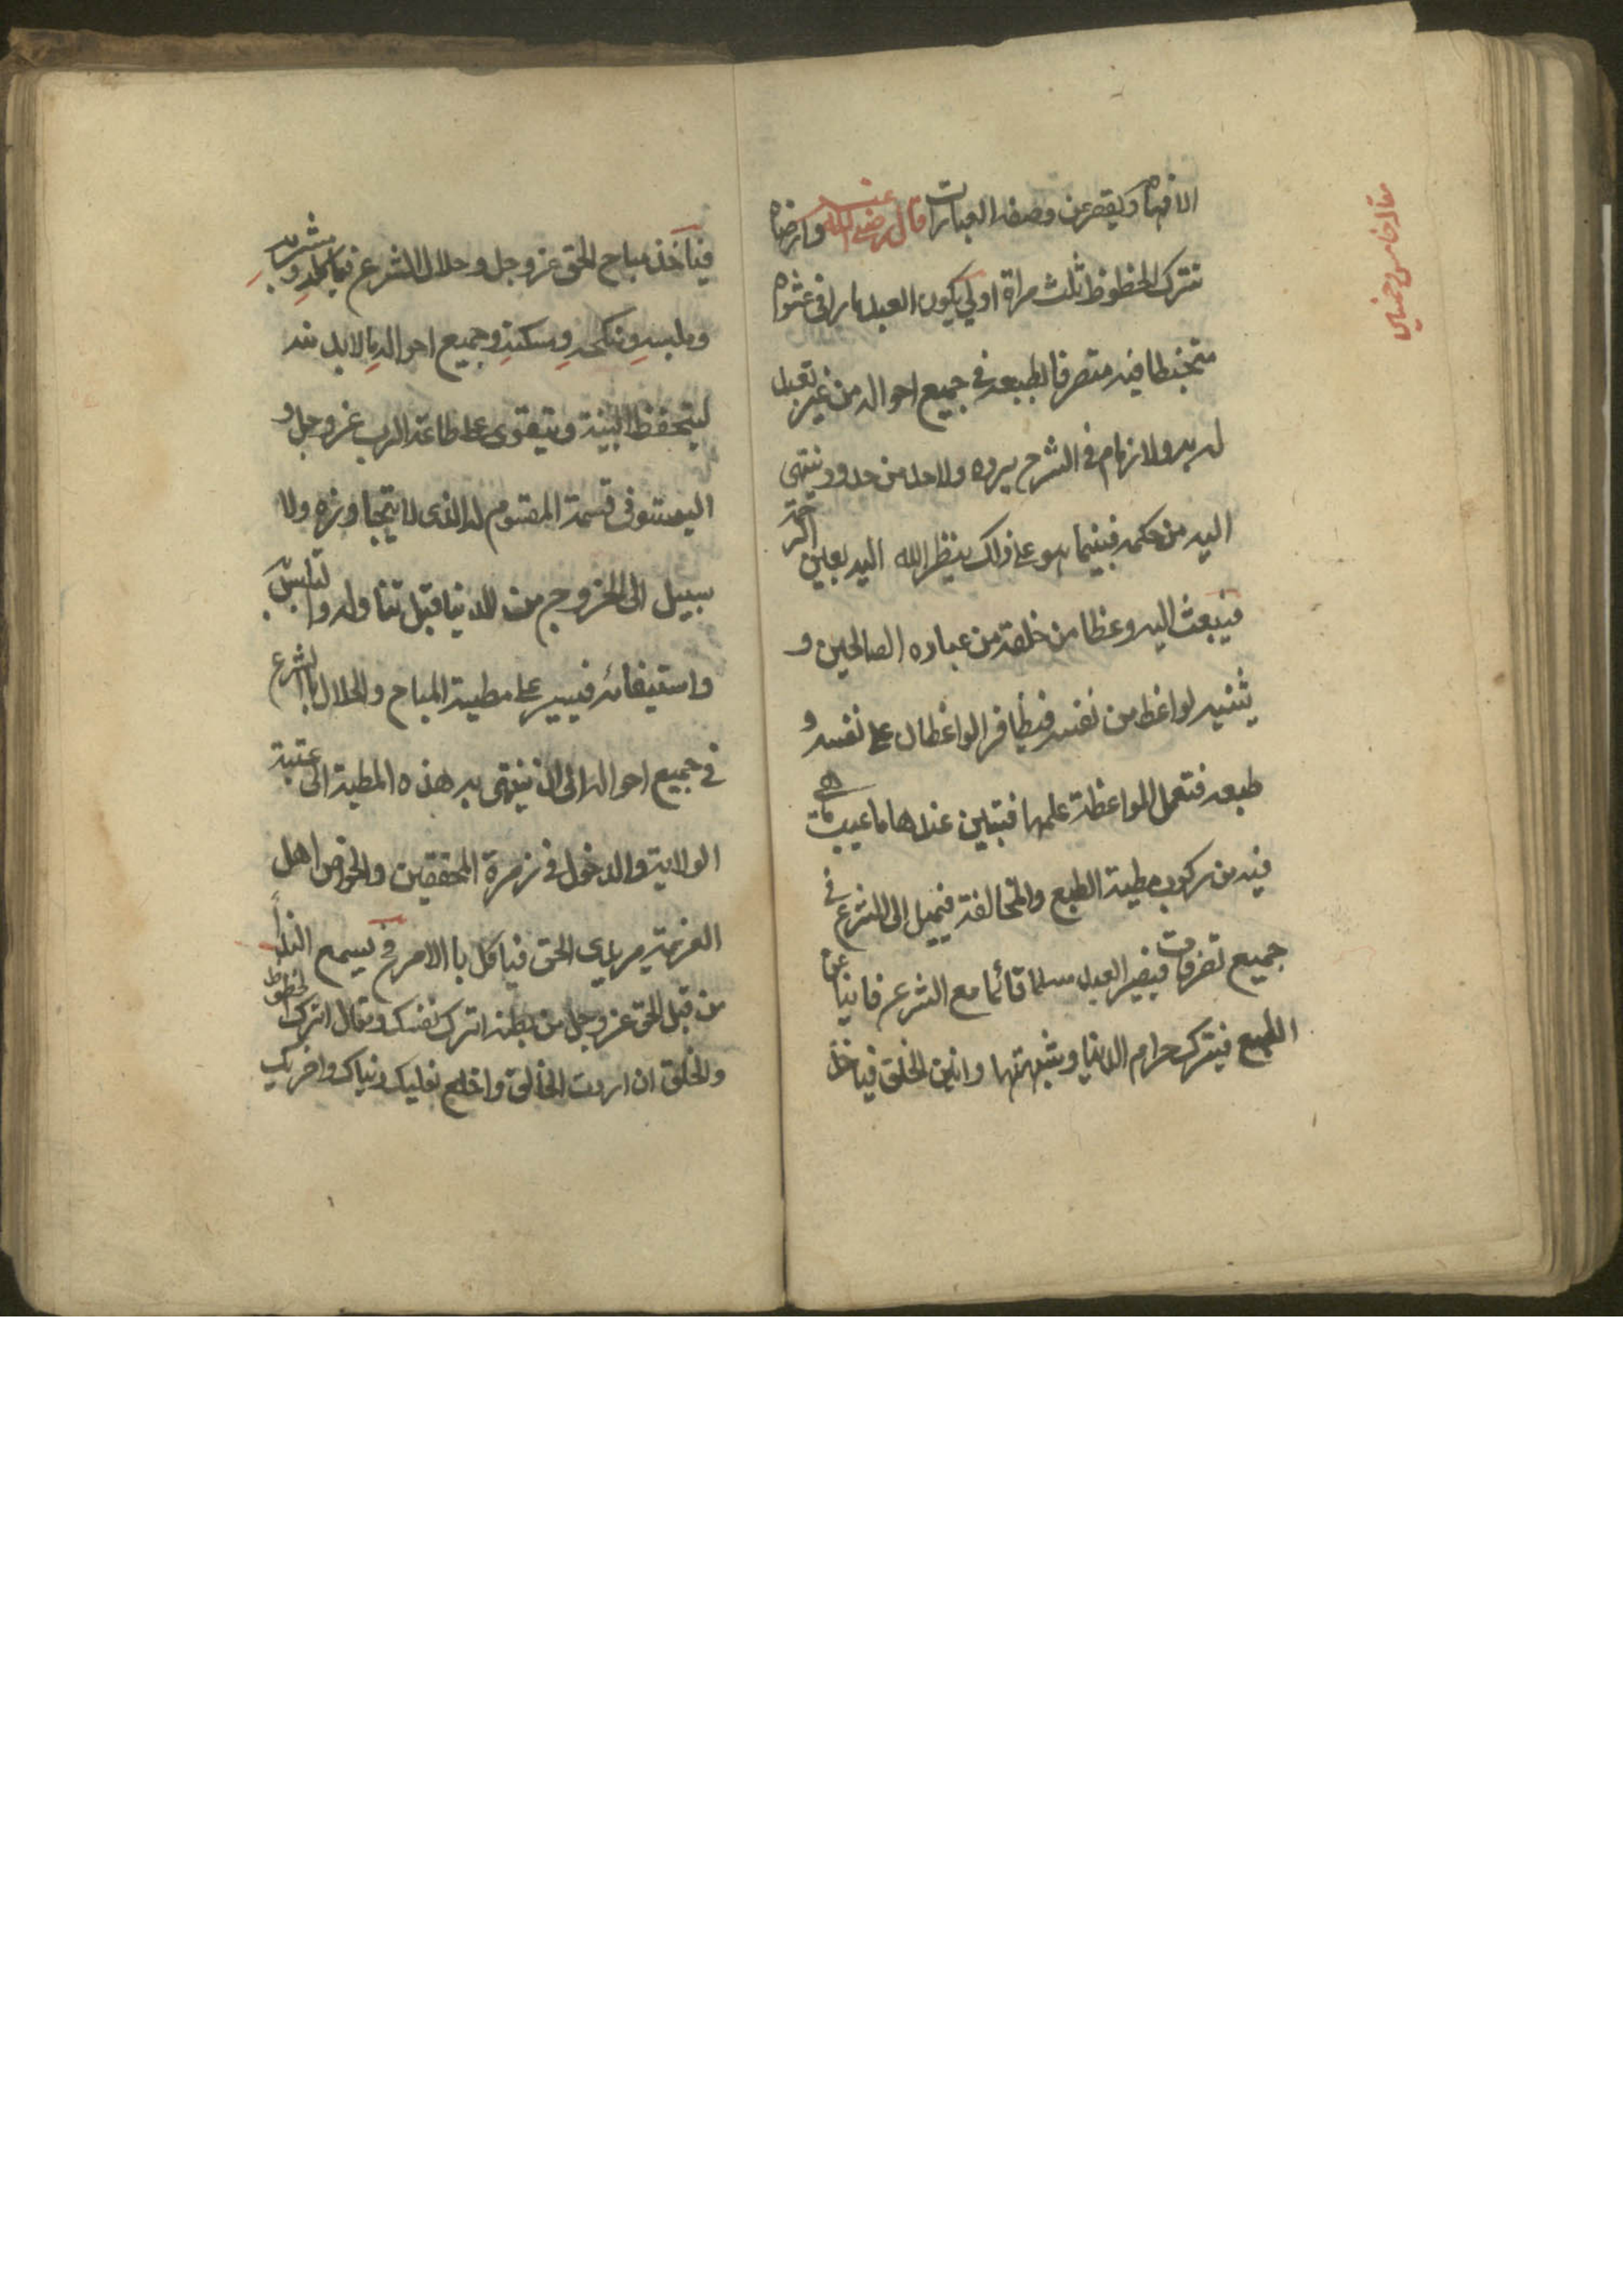 مقاله خامس وخمسين
الافهام ويقصر عن وصفه العبارات قال رضي الله عنه وارضاه
تترك الحظوظ ثلث مراة اولى يكون العبد مارا فى عشواه
متخبطا فيه متصرفا لطبعه في جميع احواله من غير تعبد
لربه ولا زمام فى الشرع يرده ولا حد من حدود ينتهى
اليه من حكمه فبينما هو على ذلك ينظر الله اليه بعين الرحمة
فيبعث اليه وعظا من خلقه من عباده الصالحين و
يثنيه لواعظ من نفسه فيظافر الواعظان على نفسه و
طبعه فتعمل المواعظة علمها فتبين عندها ما عيب ما هي
فيه من ركوب مطية الطبع والمخالفة فيميل الى الشرع في
جميع تصرفات فيصير العبد مسلما قائما مع الشرع فانيا عن
الطبع فيترك حرام الدنيا وشبهتها وانين الخلق فياخذ
فياخذ مباح الحق عز وجل وحلال الشرع في ماكله ومشربه
وملبسه ومنكحه ومسكنه وجميع احواله ما لا بد منه
ليتحفظ البنية ويتقوى على طاعة الرب عز وجل و
اليستوفى قسمة المقسوم له الذى لا يتجاوزه ولا
سبيل الى الخروج من الدنيا قبل تناوله وتلبس
واستيفائه فيسير على مطية المباح والحلال بالشرع
في جميع احواله الى ان ينتهى به هذه المطية الى عتبة
الولاية والدخول فى زمرة المحققين والخواص اهل
العزيمة مريدى الحق فياكل باالامر فح يسمع النداء
من قبل الحق عز وجل من بطنه اترك نفسك وتعال اترك الحظوظ
والخلق ان اردت الخالق واخلع نعليك دنياك واخريك